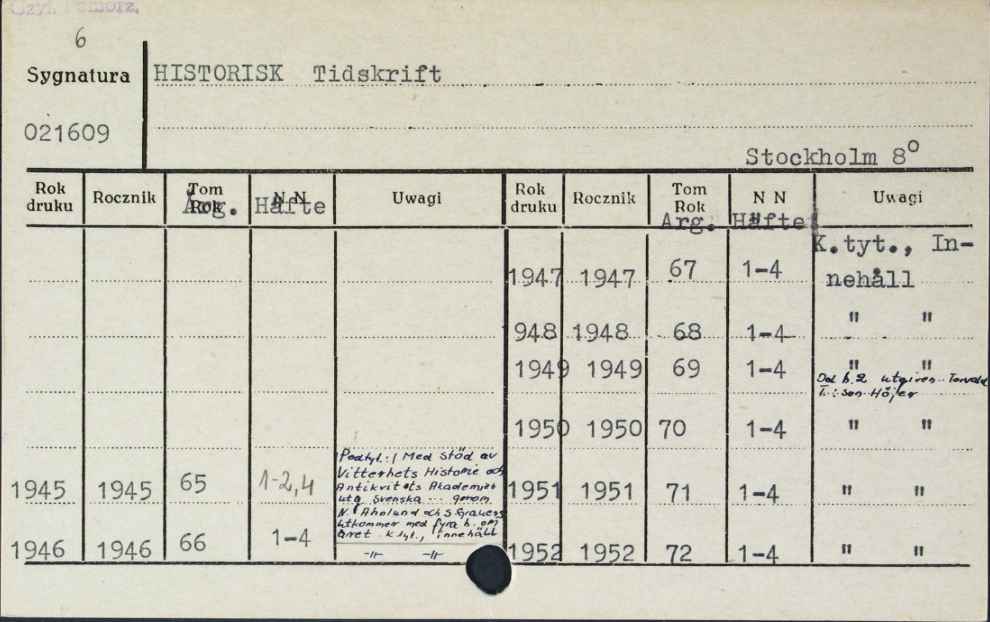 Czyt. Pomorz.
6
Sygnatura HISTORISK Tidskrift
021609
Stockholm 8°
Rok druku Rocznik Tom Rok N N Uwagi Rok druku Rocznik Tom Rok N N Uwagi
Årg. Häfte Arg. Häfte
K.tyt., In-
1947 1947 67 1-4 nehåll
948 1948 68 1-4 " "
1949 1949 69 1-4 " "
Od h.2 utgiven Torvald
T:son Höjer
1950 1950 70 1-4 " "
Podtyt.: Med stöd av
Vitterhets Historie och
Antikvitets Akademien
1945 1945 65 1-2,4 1951 1951 71 1-4 " "
utg. Svenska ... genom
N. Ahnlund och S.
Utkommer med fyra h. om
året. K.tyt., innehåll
1946 1946 66 1-4 -"- -"- 1952 1952 72 1-4 " "